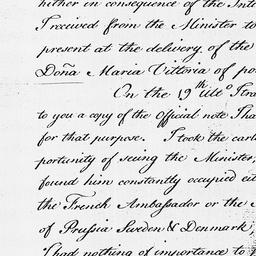 hither in consequence of the Inte
I received from the Minister to
present at the delivery of the
Doña Maria Vittoria of po
On the 19th ulto I tra
to you a copy of the Official note I ha
for that purpose. I took the earl
portunity of seeing the Minister,
found him constantly occupied eit
the French Ambassador or the
of Prussia Sweden & Denmark,
I had nothing of importance to